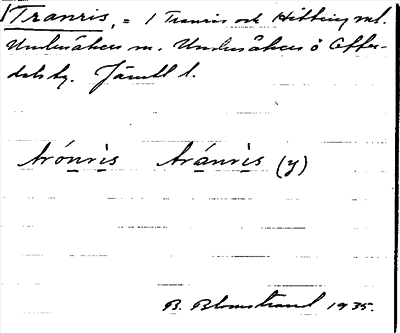 Tranris, = 1 Tranris och Hitting ml.
Undersåkers m. Undersåkers o Offer-
dals tg. Jämtl l.
trónris tránris (y)
B. Blomstrand 1935.